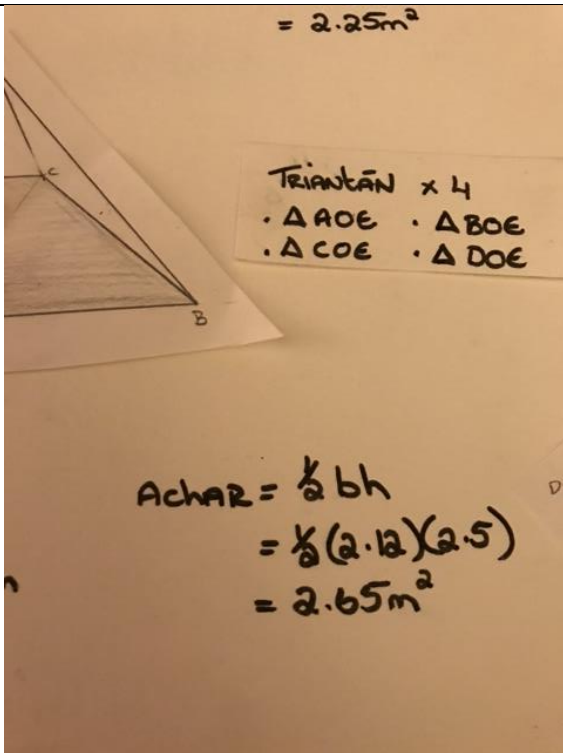 = 2.25m²
C
B
TRIANtÁN × 4
· Δ AOE · Δ BOE
· Δ COE · Δ DOE
AchAR = ½ bh
= ½ (2.12)(2.5)
= 2.65m²
D